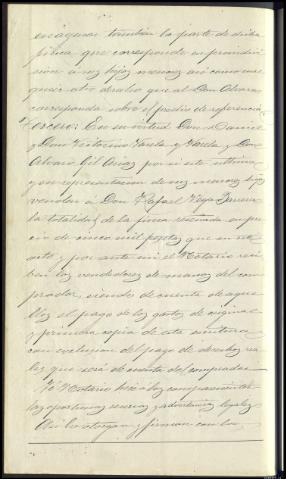 enaguar tambien la parte de dicha
finca que corresponde en prendi
sion a sus hijos menores asi como cual
quier otro derecho que al Don Alvaro
corresponda sobre el predio de referencia
Tercero: En su virtud Don Daniel
y Don Victorino Varela y Varela y Don
Alvaro Gil Arias por si este ultimo,
y en representacion de sus menores hijos
venden a Don Rafael Vega Barrera
la totalidad de la finca reseñada en pre
cio de cinco mil pesetas que en este
acto y por ante mi el Notario reci
ben los vendedores de manos del com
prador, siendo de cuenta de aque
llos el pago de los gastos de original
y primera copia de esta escritura
con exclusion del pago de derechos rea
les que será de cuenta del comprador
Yo Notario hice a los comparecientes
las oportunas reservas y advertencias legales
Asi lo otorgan y firman con los